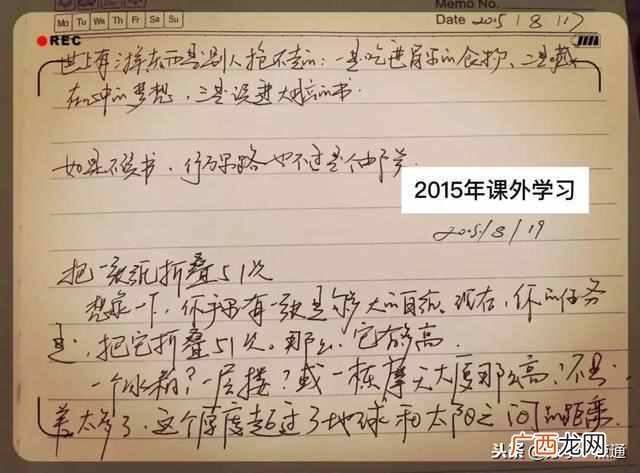 Memo No.
Mo Tu We Th Fr Sa Su
Date 2015 / 8 / 17
REC
世上有三样东西是别人抢不走的：一是吃进胃里的食物，二是藏
在心中的梦想，三是读进大脑的书.
如果不读书，行万里路也不过是个邮差.
2015年课外学习
2015/8/19
把一张纸折叠51次
想象一下，你手里有一张足够大的白纸。现在，你的任务
是，把它折叠51次。那么，它有多高
一个冰箱？一层楼？或一栋摩天大厦那么高？不是
差太多了，这个厚度超过了地球和太阳之间的距离.
头条
通
广西龙网